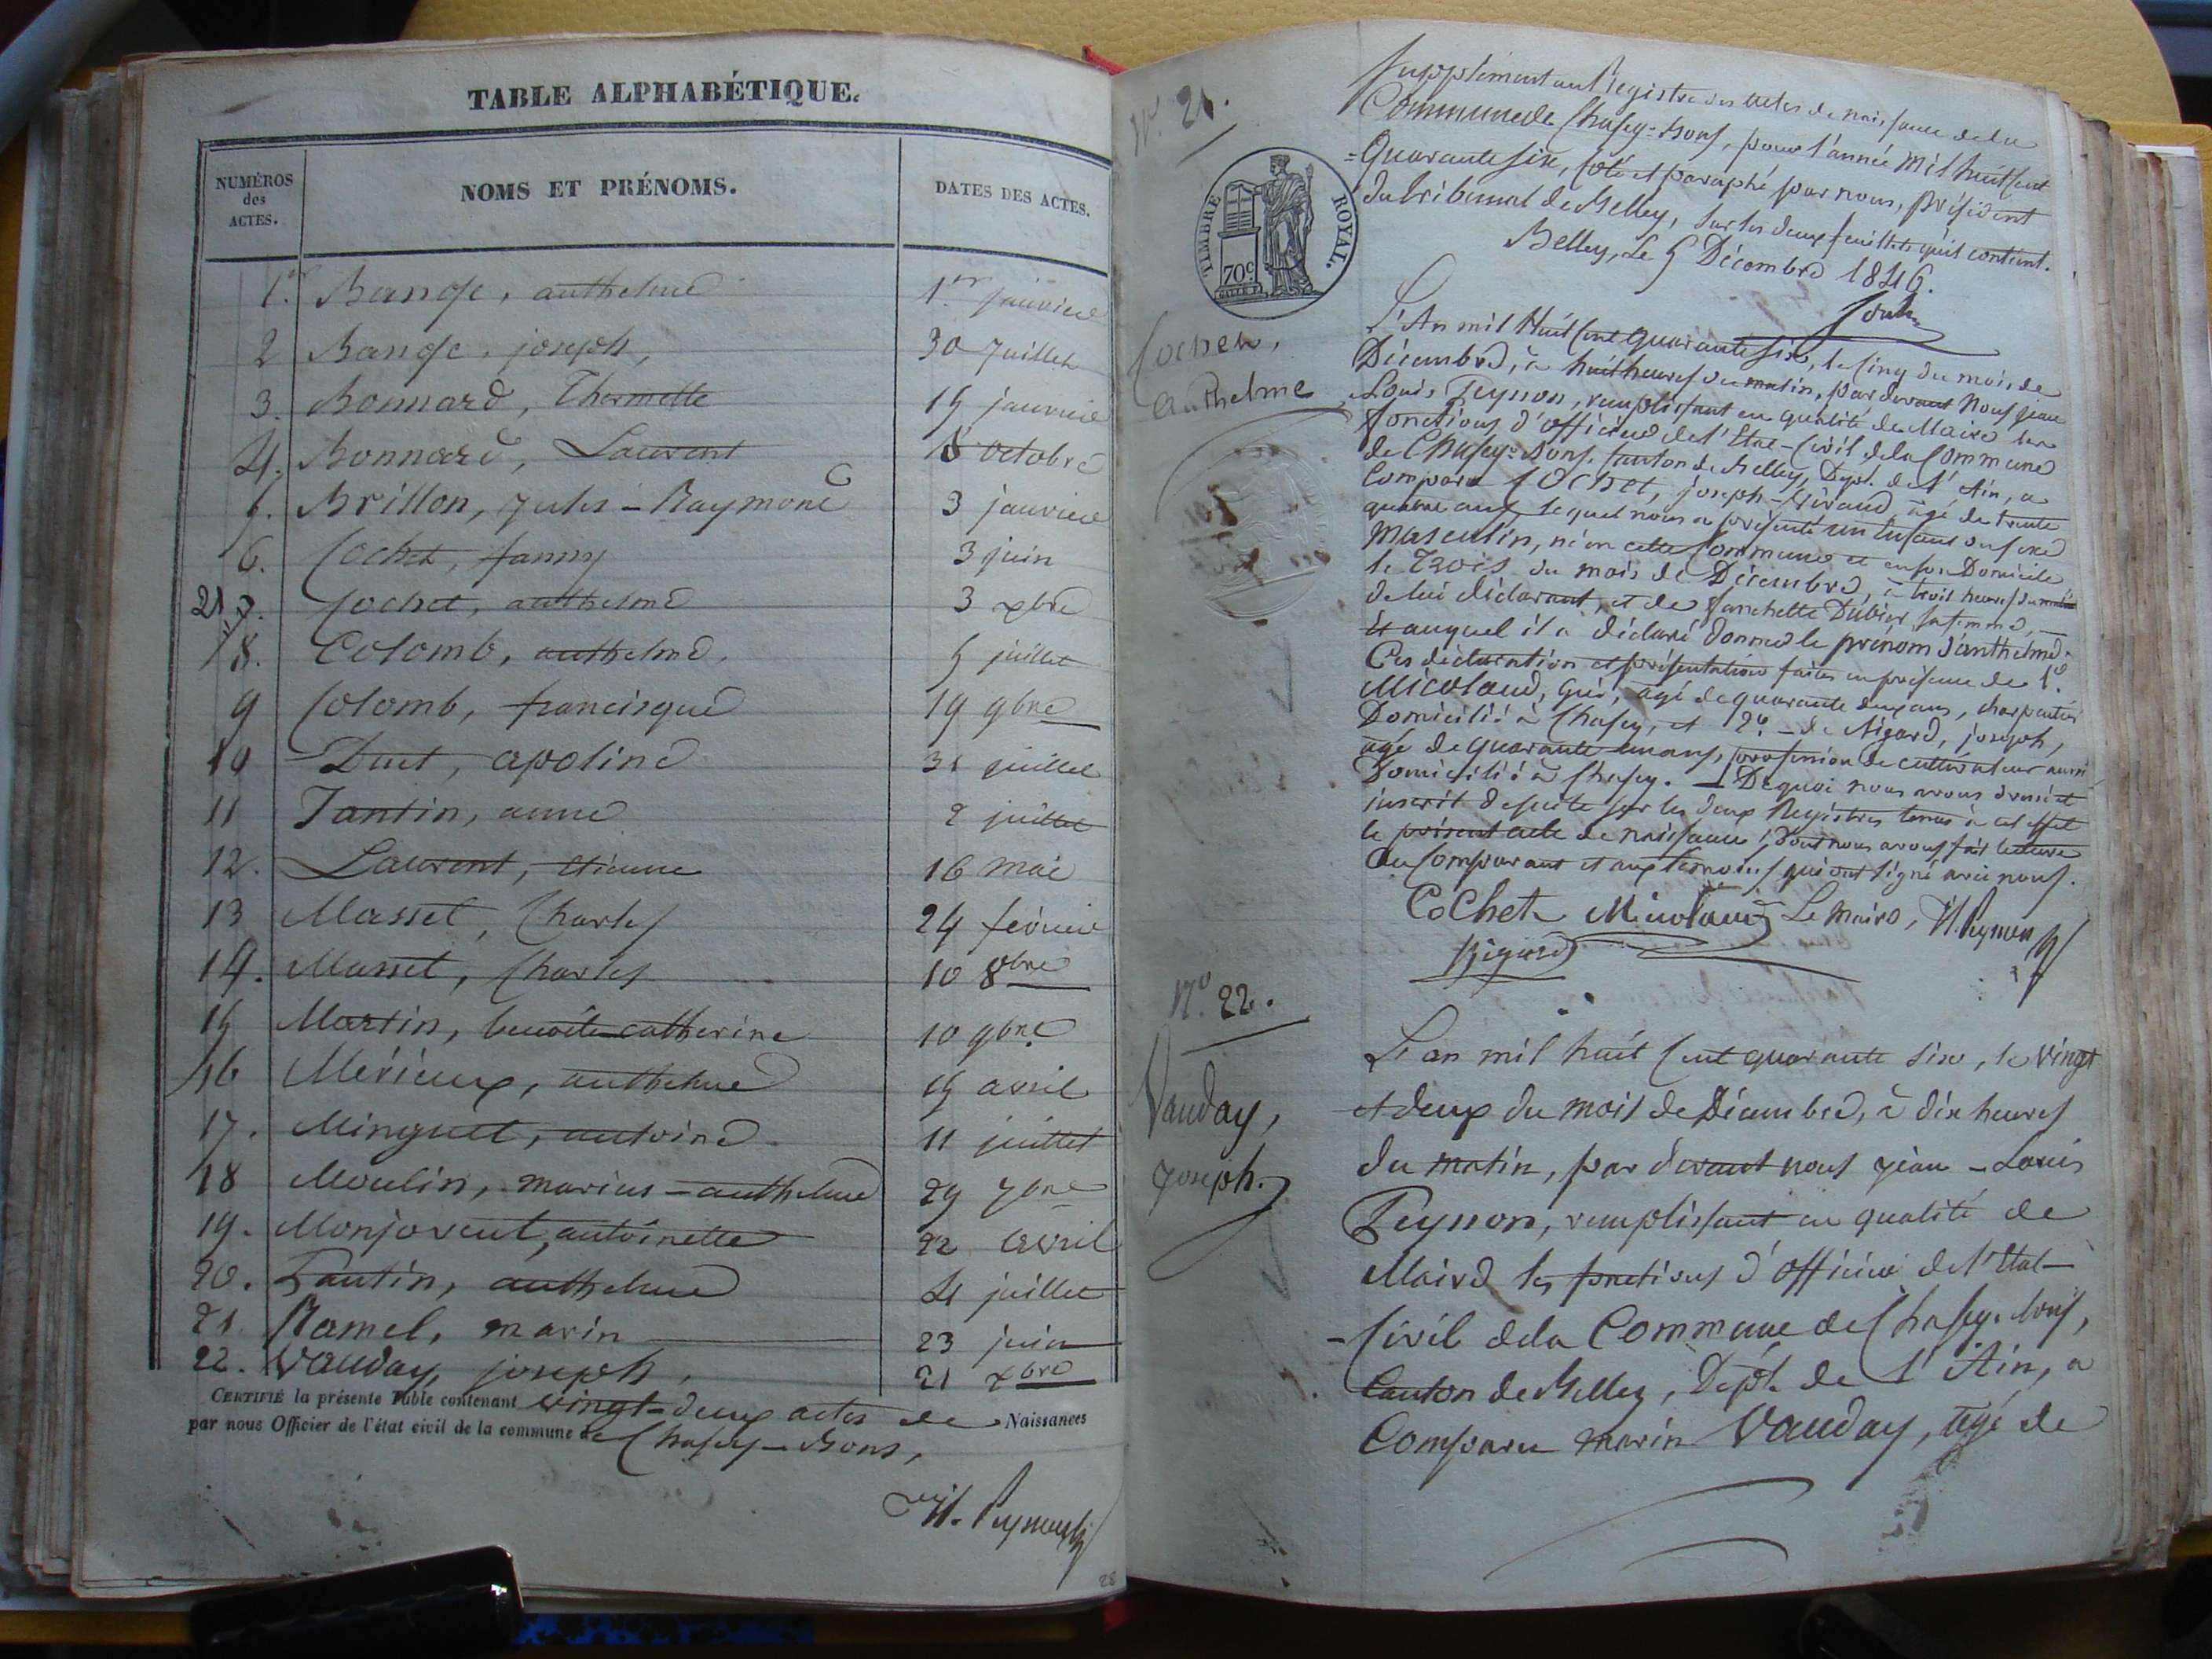 TABLE ALPHABÉTIQUE.
NUMÉROS des ACTES. NOMS ET PRÉNOMS. DATES DES ACTES.
1er. Bange, anthelme 1er janvier
2 Bange, joseph, 30 Juillet
3. Bonnard, Thermette 15 janvier
4. Bonnard, Laurent 8 octobre
5. Brillon, Jules-Raymond 3 janvier
6. Cochet, fanny 3 juin
21 7. Cochet, anthelme 3 xbre
8. Colomb, anthelme, 5 juillet
9 Colomb, francisque 19 9bre
10 Duct, apoline 31 juillet
11 Jantin, anne 2 juillet
12. Laurent, etienne 16 mai
13 Masset, Charles 24 février
14. Masset, Charles 10 8bre
15 Martin, benoîte catherine 10 9bre
16 Mérieux, anthelme 15 avril
17. Minguet, antoine 11 juillet
18 Moulin, marius-anthelme 29 7bre
19. Monjovent, antoinette 22 avril
20. Pantin, anthelme 4 juillet
21 Ramel, marin 23 juin
22. Vauday, joseph, 21 xbre
CERTIFIÉ la présente Table contenant vingt-deux actes de Naissances
par nous Officier de l'état civil de la commune de Chasey-Bons,
28
N°. 21.
Supplément au Registre des actes de naissance de la
Commune de Chasey-Bons, pour l'année mil huit cent
=Quarante six, coté et paraphé par nous, président
du tribunal de Belley, sur les deux feuillets qu'il contient.
Belley, Le 5 Décembre 1846.
TIMBRE ROYAL.
70c
Cochet,
anthelme
L'An mil Huit Cent quarante six, le cinq du mois de
Décembre, à huit heures du matin, par devant Nous jean
Louis Peysson, remplissant en qualité de Maire les
fonctions d'officier de l'Etat-Civil de la Commune
de Chasey-Bons, Canton de Belley, Dept. de l'Ain, a
Comparu Cochet, joseph-Giraud, âgé de trente
quatre ans, lequel nous a présenté un Enfant du sexe
Masculin, né en cette Commune et en son Domicile
le Trois du mois de Décembre, à trois heures du matin
de lui déclarant, et de fanchette Dubier sa femme,
et auquel il a déclaré donner le prénom d'anthelme.
Ces déclaration et présentation faites en présence de 1°.
Micoland, âgé de quarante deux ans, charpentier
Domicilié à Chasey, et 2°. de Rigard, joseph,
âgé de quarante un ans, profession de cultivateur aussi
Domicilié à Chasey. Dequoi nous avons dressé et
inscrit desuite sur les deux Registres tenus à cet effet
le présent acte de naissance, dont nous avons fait lecture
au Comparant et aux témoins qui ont signé avec nous.
Cochet Micoland Le Maire,
Rigard
N° 22.
Vauday,
Joseph.
L'an mil huit Cent quarante six, le vingt
et deux du mois de Décembre, à dix heures
du matin, par devant nous jean-Louis
Peysson, remplissant en qualité de
Maire les fonctions d'officier de l'Etat-
-Civil de la Commune de Chasey-Bons,
Canton de Belley, Dept. de l'Ain, a
Comparu marin Vauday, âgé de